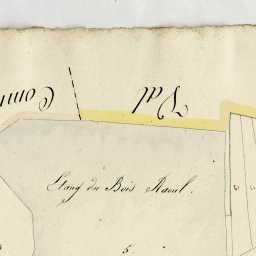 Comm
Val
Etang du Bois Raoul.
5.